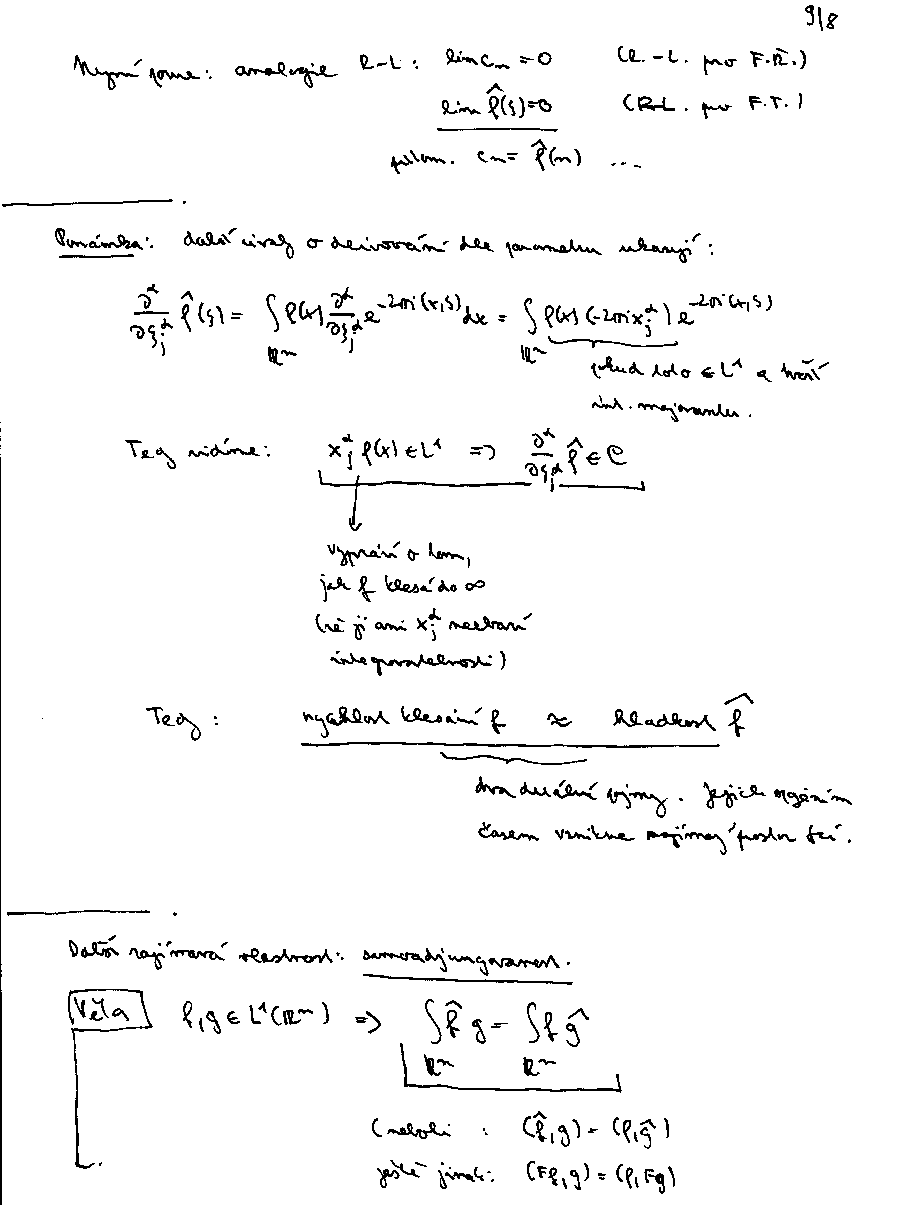 9/8
Nyní jsme: analogie R-L: lim cₙ = 0 (R.-L. pro F.Ř.)
lim f̂(ξ) = 0 (R-L. pro F.T.)
cₙ = f̂(n) ...
Poznámka: další úvahy o derivování dle parametru ukazují:
∂^α/∂ξ_j^α f̂(ξ) = ∫_{ℝⁿ} f(x) ∂^α/∂ξ_j^α e^{-2πi(x,ξ)} dx = ∫_{ℝⁿ} f(x) (-2πi x_j^α) e^{-2πi(x,ξ)}
pokud toto ∈ L¹ a tvoří
int. majorantu.
Tedy vidíme: x_j^α f(x) ∈ L¹ => ∂^α/∂ξ_j^α f̂ ∈ C
vypráví o tom,
jak f klesá do ∞
(že jí ani x_j^α nezbaví
integrovatelnosti)
Tedy: rychlost klesání f ≈ hladkost f̂
dva duální pojmy. Jejich spojením
časem vznikne zajímavý prostor fcí.
Další zajímavá vlastnost: samoadjungovanost.
Věta f, g ∈ L¹(ℝⁿ) => ∫_{ℝⁿ} f̂ g = ∫_{ℝⁿ} f ĝ
(neboli : (f̂, g) = (f, ĝ)
ještě jinak: (Ff, g) = (f, Fg)